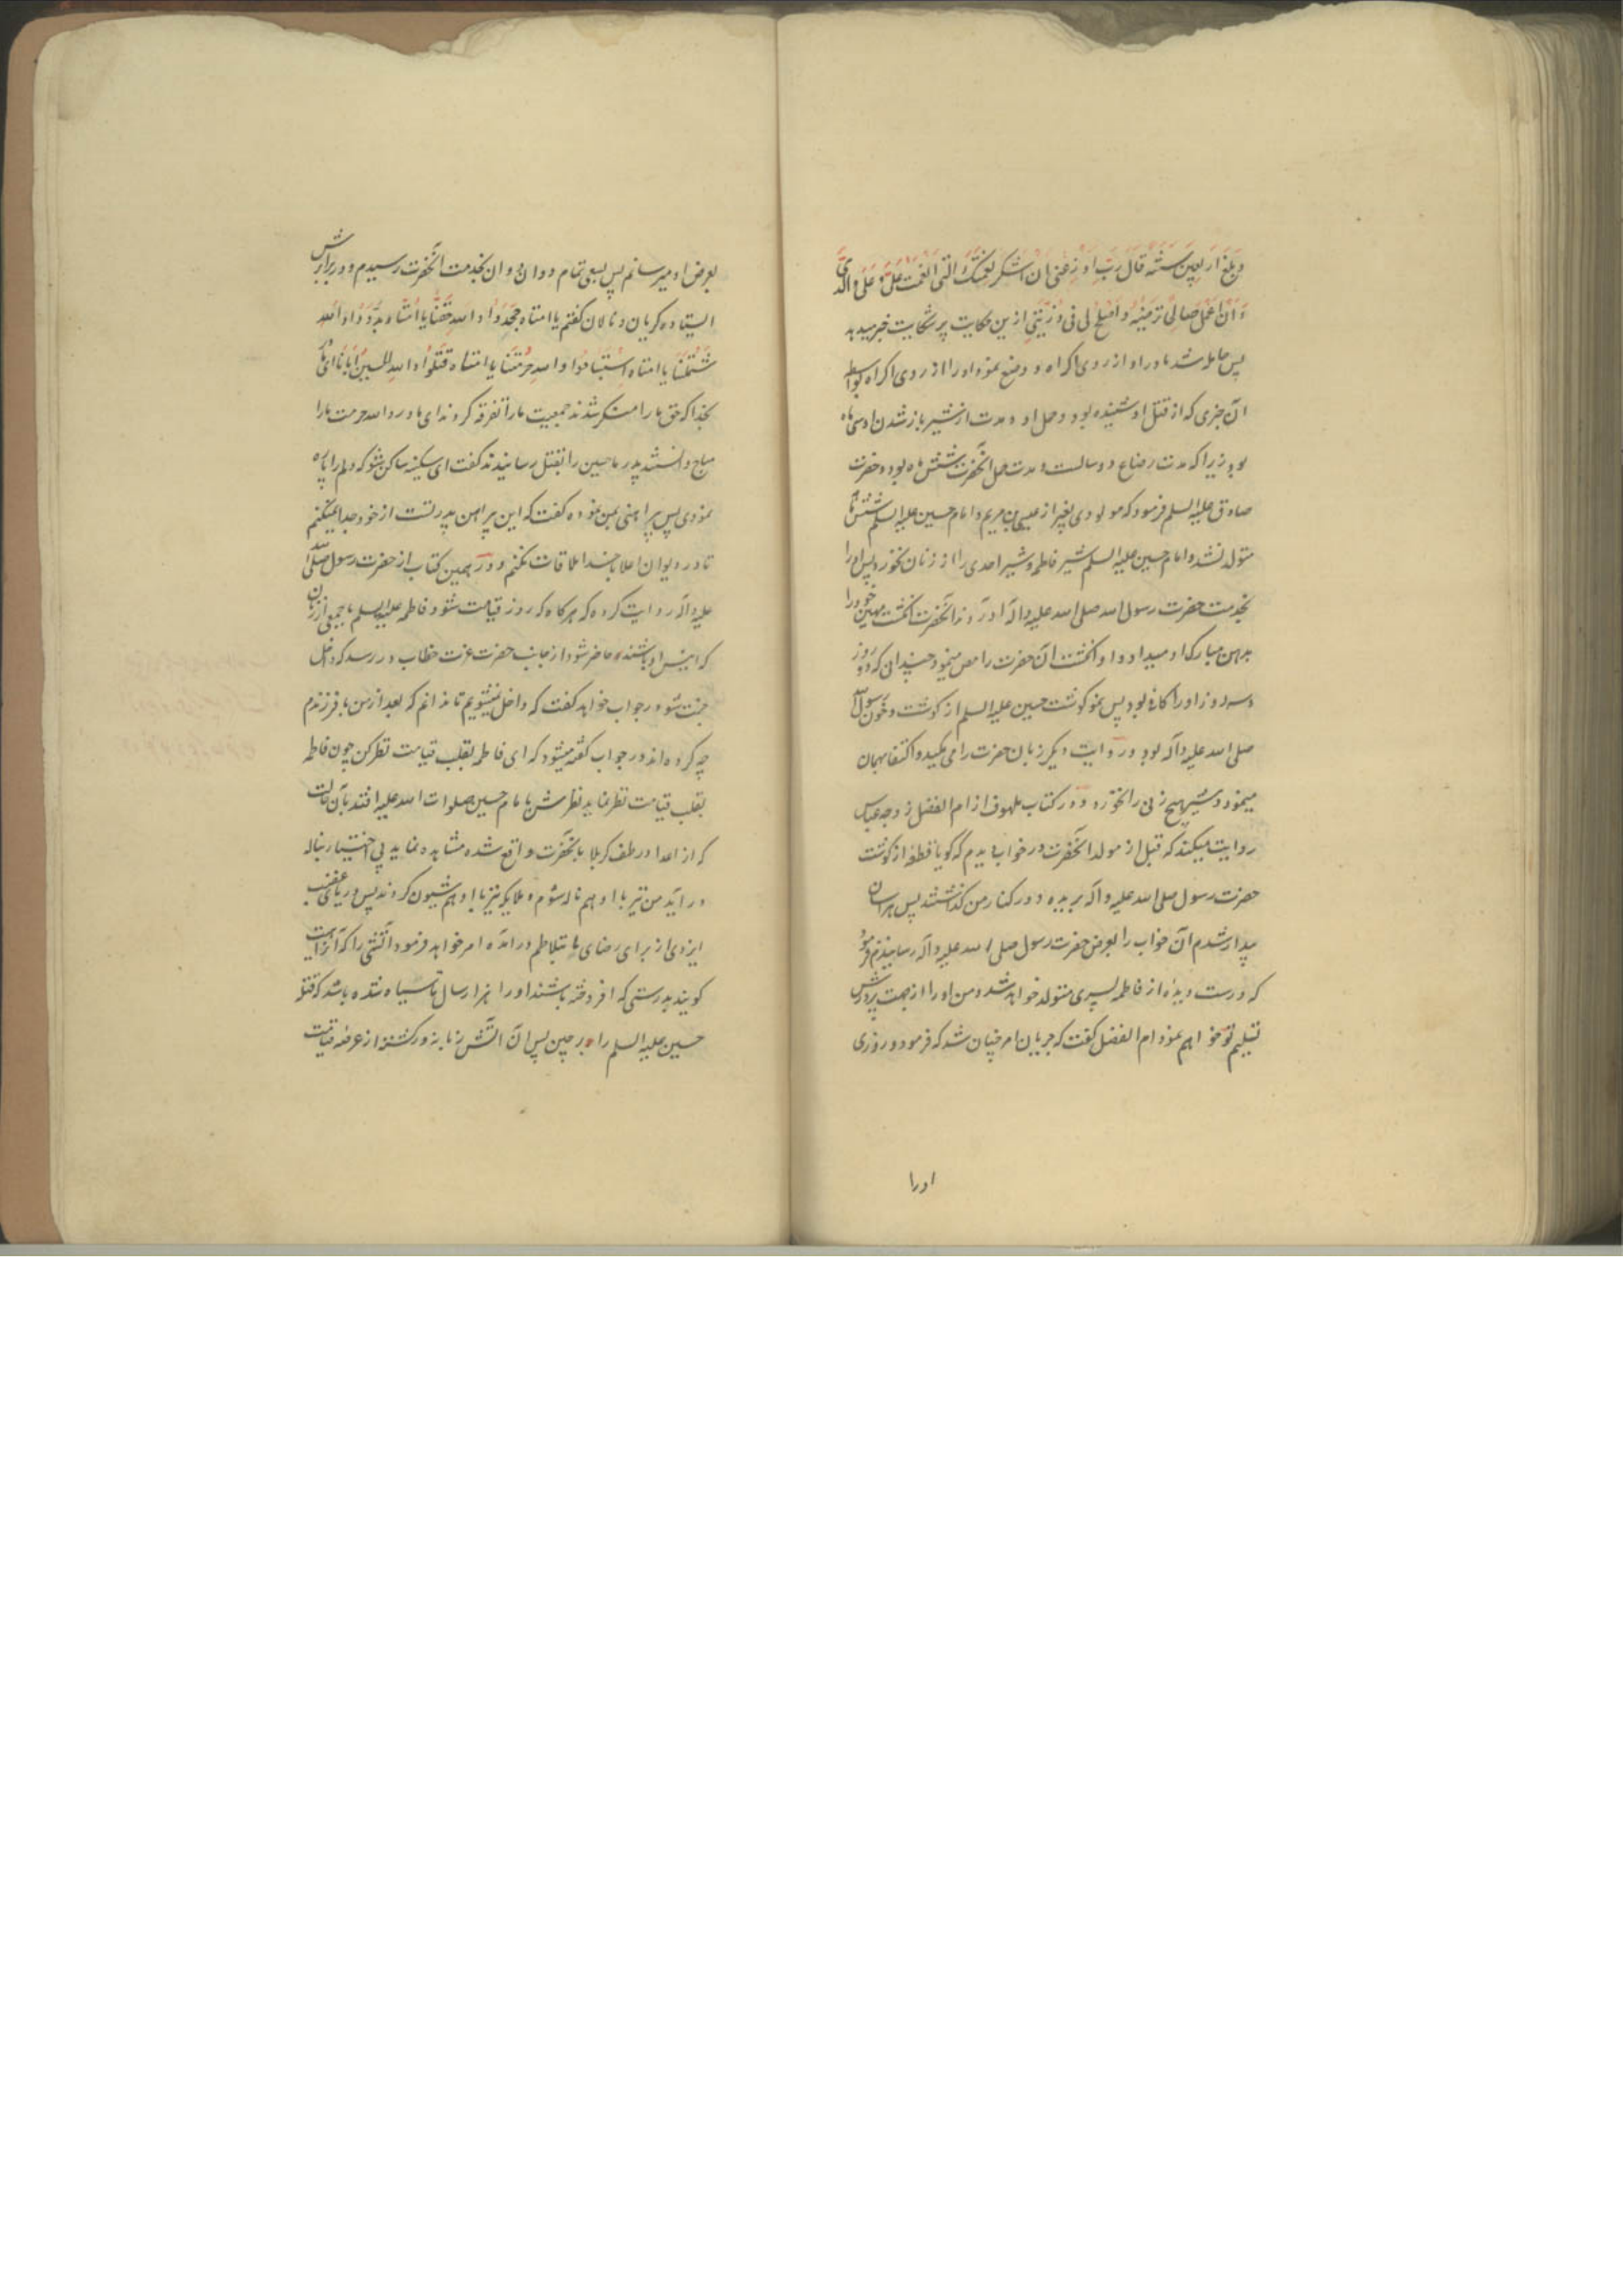 وبلغ اربعین سنة قال رب اوزعنی ان اشکر نعمتک التی انعمت علی و علی والدی
و ان اعمل صالحا ترضیه و اصلح لی فی ذریتی ازین حکایت پر شکایت خبر میدهد
پس حامله شد مادر او از روی اکراه و وضع نمود او را از روی اکراه بواسطه
آن خبری که از قتل او شنیده بود و حمل او و مدت از شیر باز شدن او سی ماه
بود زیرا که مدت رضاع دو سالست و مدت حمل آنحضرت شش ماه بود و حضرت
صادق علیه السلم فرمود که مولودی بغیر از عیسی بن مریم و امام حسین علیه السلم شش ماه
متولد نشد و امام حسین علیه السلم شیر فاطمه و شیر احدی را از زنان نخورد پس او را
بخدمت حضرت رسول الله صلی الله علیه و آله آوردند آنحضرت انکشت مهین خود را
بدهن مبارک او میداد و او انکشت آن حضرت را مص مینمود چندان که دو روز
و سه روز او را کافی بود پس نمو کوشت حسین علیه السلم از کوشت و خون رسول الله
صلی الله علیه و آله بود و در روایت دیکر زبان حضرت را می مکید و اکتفا بهمان
مینمود و شیر هیچ زنی را نخورد و در کتاب ملهوف از ام الفضل زوجه عباس
روایت میکند که قبل از مولد آنحضرت در خواب دیدم که کویا قطعه از کوشت
حضرت رسول صلی الله علیه و آله بریده و در کنار من کذاشتند پس هراسان
بیدار شدم آن خواب را بعرض حضرت رسول صلی الله علیه و آله رسانیدم فرمود
که درست دیده از فاطمه پسری متولد خواهد شد و من او را از جهت پرورش
تسلیم تو خواهم نمود ام الفضل کفت که جریان امر چنان شد که فرمود و روزی
او را
بعرض او میرسانم پس بسعی تمام دوان دوان بخدمت آنحضرت رسیدم و در برابرش
ایستاده کریان و نالان کفتم یا امتاه جحدوا والله حقنا یا امتاه بددوا والله
شملنا یا امتاه استباحوا والله حرمتنا یا امتاه قتلوا والله الحسین ابانا ای مادر
بخدا که حق ما را منکر شدند جمعیت ما را تفرقه کردند ای مادر والله حرمت ما را
مباح دانستند پدر ما حسین را بقتل رسانیدند کفت ای سکینه ساکن شو که دلم را پاره
نمودی پس پیراهنی بمن نموده کفت که این پیراهن پدر تست از خود جدا نمیکنم
تا در دیوان اعلا با خدا ملاقات نکنم و در همین کتاب از حضرت رسول صلی الله
علیه و آله روایت کرده که هر کاه که روز قیامت شود فاطمه علیها السلم با جمعی از زنان
که انیس او باشند حاضر شود از جانب حضرت عزت خطاب در رسد که داخل
جنت شو در جواب خواهد کفت که داخل نمیشویم تا ندانم که بعد از من با فرزندم
چه کرده اند در جواب کفته میشود که ای فاطمه بقلب قیامت نظر کن چون فاطمه
بقلب قیامت نظر نماید نظرش بامام حسین صلوات الله علیه افتد بآن حالت
که از اعدا در طف کربلا بآنحضرت واقع شده مشاهده نماید بی اختیار بناله
در آید من نیز با او هم ناله شوم و ملایکه نیز با او هم شیون کردند پس دریای غضب
ایزدی از برای رضای ما بتلاطم درآمده امر خواهد فرمود آتشی را که آنرا هبهب
کویند بدرستی که افروخته باشند او را هزار سال تا سیاه شده باشد که قتله
حسین علیه السلم را بر چین پس آن آتش زبانه زور کشند از عرصه قیامت